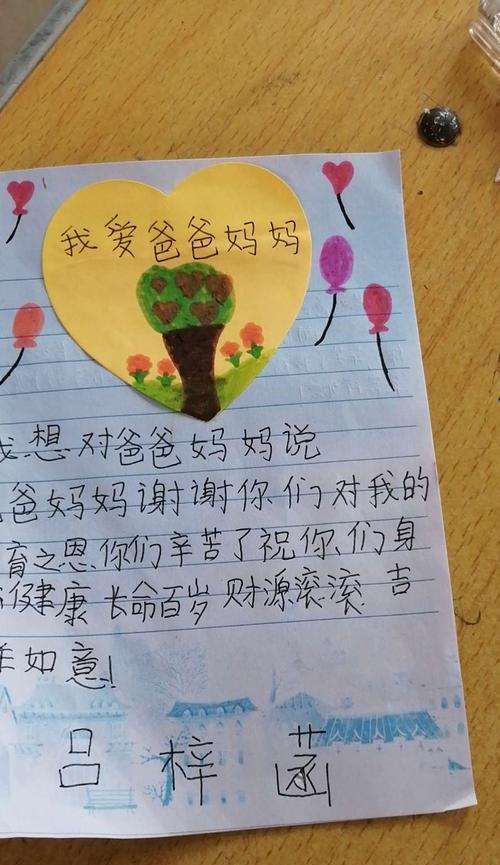 我爱爸爸妈妈
我想对爸爸妈妈说
爸爸妈妈谢谢你们对我的
育之恩你们辛苦了祝你们身
健康长命百岁财源滚滚吉
如意!
吕梓菡